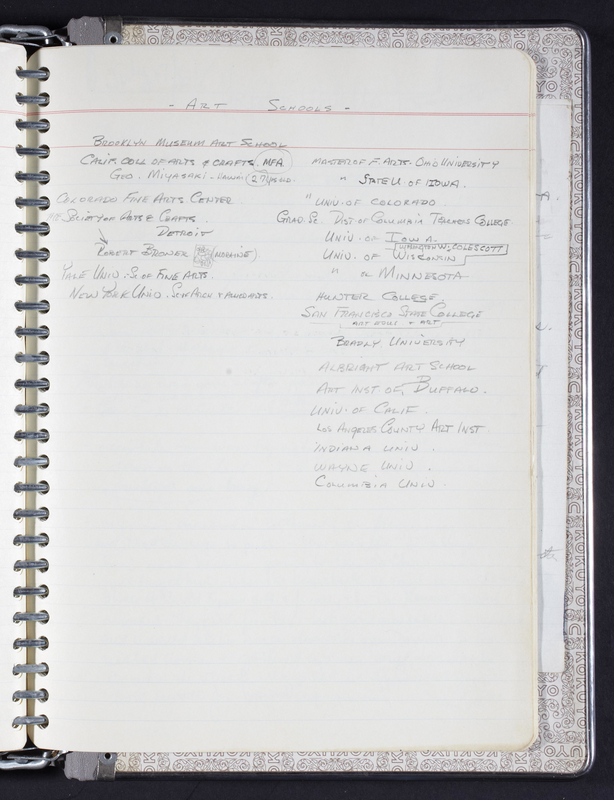 - ART SCHOOLS -
BROOKLYN MUSEUM ART SCHOOL
CALIF. COLL OF ARTS & CRAFTS. MFA
GEO. MIYASAKI - HAWAII (27)
COLORADO FINE ARTS CENTER
SOCIETY OF ARTS & CRAFTS.
DETROIT
ROBERT BRONER (NORAINE)
YALE UNIV. SC OF FINE ARTS.
NEW YORK UNIV. SC OF ARCH & ALLIED ARTS.
MASTER OF F. ARTS. OHIO UNIVERSITY
" STATE U OF IOWA.
" UNIV. OF COLORADO
GRAD. SC. DIST OF COLUMBIA TEACHERS COLLEGE
UNIV. OF IOWA.
WARRINGTON W. COLESCOTT
UNIV. OF WISCONSIN
" OF MINNESOTA
HUNTER COLLEGE.
SAN FRANCISCO STATE COLLEGE
ART EDUC & ART
BRADLY UNIVERSITY
ALBRIGHT ART SCHOOL
ART INST OF BUFFALO.
UNIV. OF CALIF.
LOS ANGELES COUNTY ART INST.
INDIANA UNIV.
WAYNE UNIV.
COLUMBIA UNIV.
KOKUYO